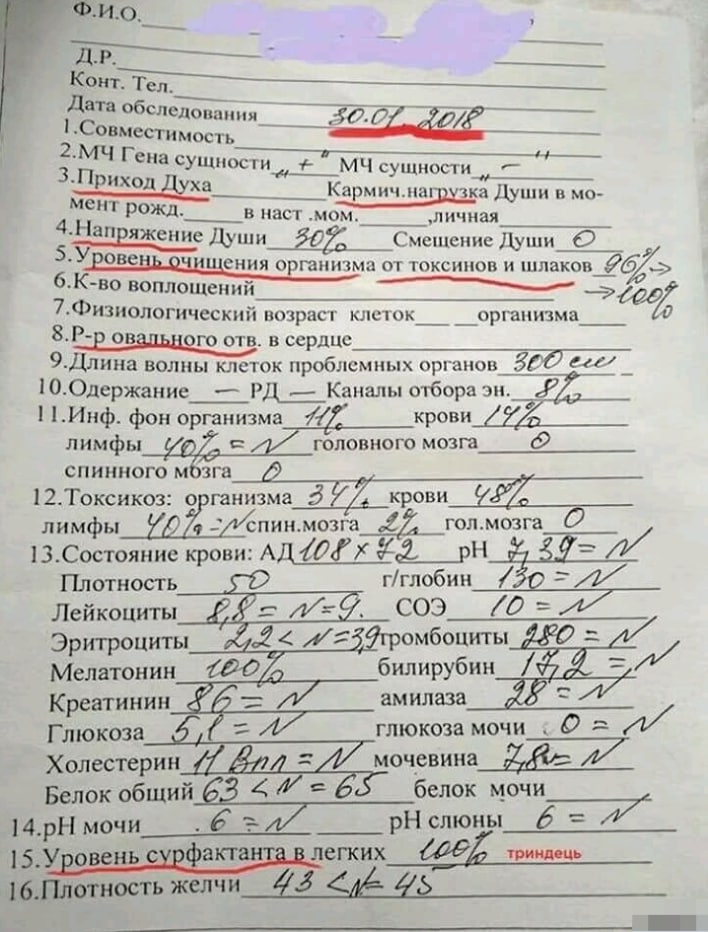 Ф.И.О.
Д.Р.
Конт. Тел.
Дата обследования 30.01. 2018
1.Совместимость
2.МЧ Гена сущности „ + " МЧ сущности „ — "
3.Приход Духа Кармич.нагрузка Души в мо-
мент рожд. в наст .мом. ,личная
4.Напряжение Души 30% Смещение Души 0
5.Уровень очищения организма от токсинов и шлаков 96% →
6.К-во воплощений → 100%
7.Физиологический возраст клеток организма
8.Р-р овального отв. в сердце
9.Длина волны клеток проблемных органов 300 см
10.Одержание — РД — Каналы отбора эн. 8%
11.Инф. фон организма 11% крови 14%
лимфы 40% = N головного мозга 0
спинного мозга 0
12.Токсикоз: организма 34% крови 48%
лимфы 40% = N спин.мозга 2% гол.мозга 0
13.Состояние крови: АД 108 × 72 pH 7,39 = N
Плотность 50 г/глобин 130 = N
Лейкоциты 8,8 = N = 9. СОЭ 10 = N
Эритроциты 2,2 < N = 3,9 тромбоциты 280 = N
Мелатонин 100% билирубин 17,2 = N
Креатинин 86 = N амилаза 28 = N
Глюкоза 5,1 = N глюкоза мочи 0 = N
Холестерин = N мочевина 7,8 = N
Белок общий 63 < N = 65 белок мочи
14.pH мочи 6 = N pH слюны 6 = N
15.Уровень сурфактанта в легких 100% триндець
16.Плотность желчи 43 < N = 45